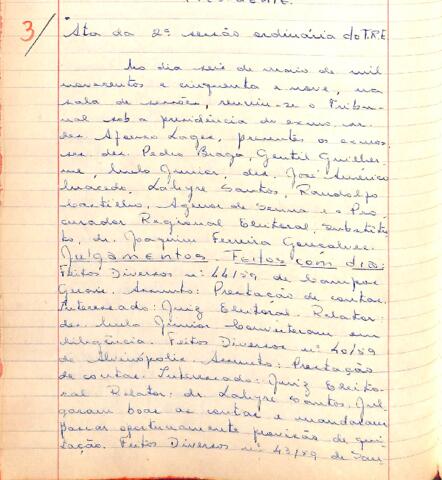 PRESIDENTE.
3/
Ata da 2ª sessão ordinária do T.R.E.
No dia seis de maio de mil
novecentos e cinquenta e nove, na
sala de sessões, reuniu-se o Tribu-
nal sob a presidência do exmo. sr.
des. Afonso Lages, presentes os exmos.
srs. des. Pedro Braga, Gentil Guilher-
me, Melo Júnior, drs. José Américo
Macedo, Lahyre Santos, Randolfo
Castilho, Agenor de Senna e o Pro
curador Regional Eleitoral, substitu
to, dr. Joaquim Ferreira Gonçalves.
Julgamentos. Feitos com dia:
Feitos Diversos nº 44/59 de Campos
Gerais. Assunto: Prestação de contas.
Interessado: Juiz Eleitoral. Relator:
des. Melo Júnior. Converteram em
diligência. Feitos Diversos nº 40/59
de Alvinópolis. Assunto: Prestação
de contas. Interessado: Juiz Eleito-
ral. Relator: dr. Lahyre Santos. Jul
garam boas as contas e mandaram
passar oportunamente provisão de qui
tação. Feitos Diversos nº 43/59 de